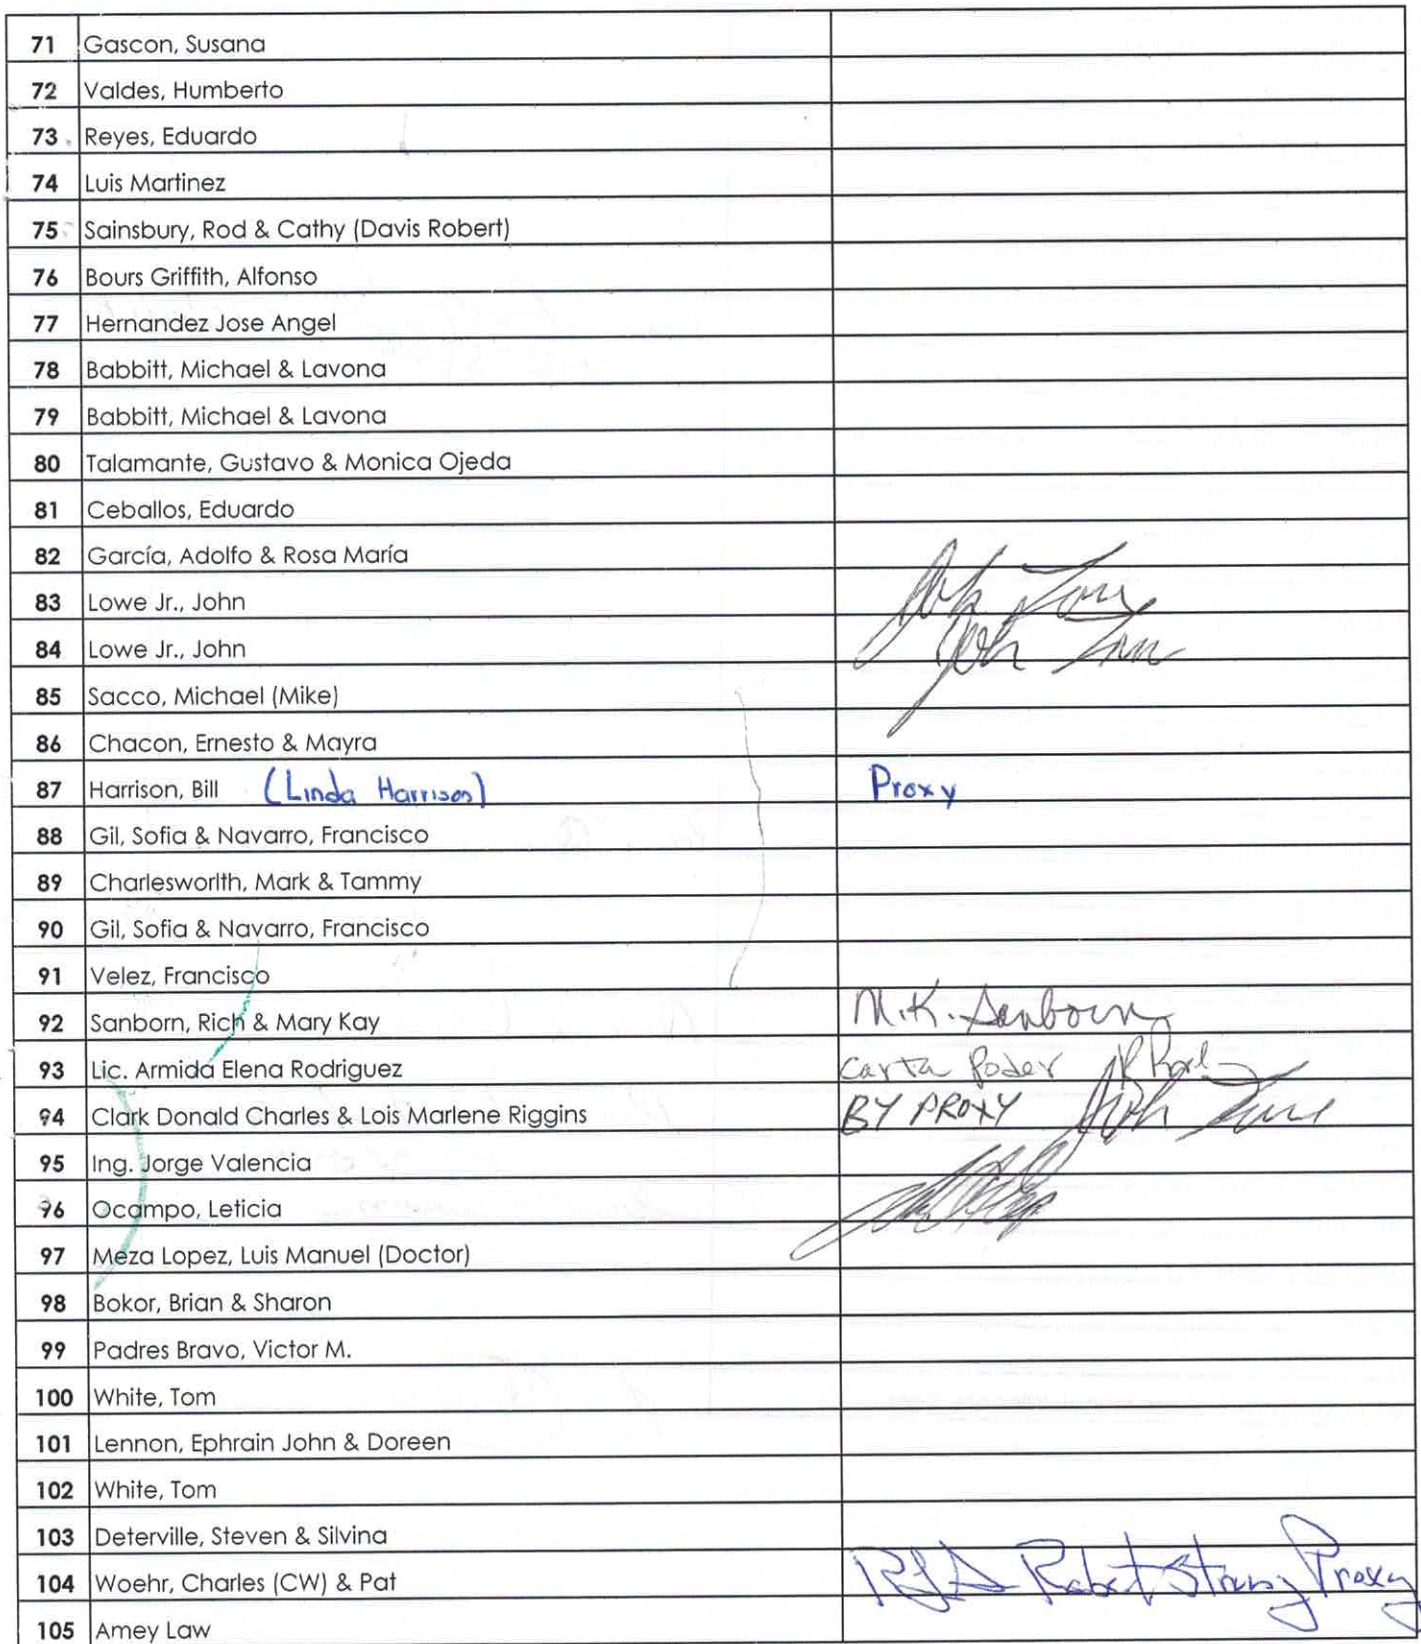 71 Gascon, Susana
72 Valdes, Humberto
73 Reyes, Eduardo
74 Luis Martinez
75 Sainsbury, Rod & Cathy (Davis Robert)
76 Bours Griffith, Alfonso
77 Hernandez Jose Angel
78 Babbitt, Michael & Lavona
79 Babbitt, Michael & Lavona
80 Talamante, Gustavo & Monica Ojeda
81 Ceballos, Eduardo
82 García, Adolfo & Rosa María
83 Lowe Jr., John
84 Lowe Jr., John
85 Sacco, Michael (Mike)
86 Chacon, Ernesto & Mayra
87 Harrison, Bill (Linda Harrison) Proxy
88 Gil, Sofia & Navarro, Francisco
89 Charlesworlth, Mark & Tammy
90 Gil, Sofia & Navarro, Francisco
91 Velez, Francisco
92 Sanborn, Rich & Mary Kay M.K. Sanborn
93 Lic. Armida Elena Rodriguez Carta Poder
94 Clark Donald Charles & Lois Marlene Riggins BY PROXY
95 Ing. Jorge Valencia
96 Ocampo, Leticia
97 Meza Lopez, Luis Manuel (Doctor)
98 Bokor, Brian & Sharon
99 Padres Bravo, Victor M.
100 White, Tom
101 Lennon, Ephrain John & Doreen
102 White, Tom
103 Deterville, Steven & Silvina
104 Woehr, Charles (CW) & Pat Robert Proxy
105 Amey Law